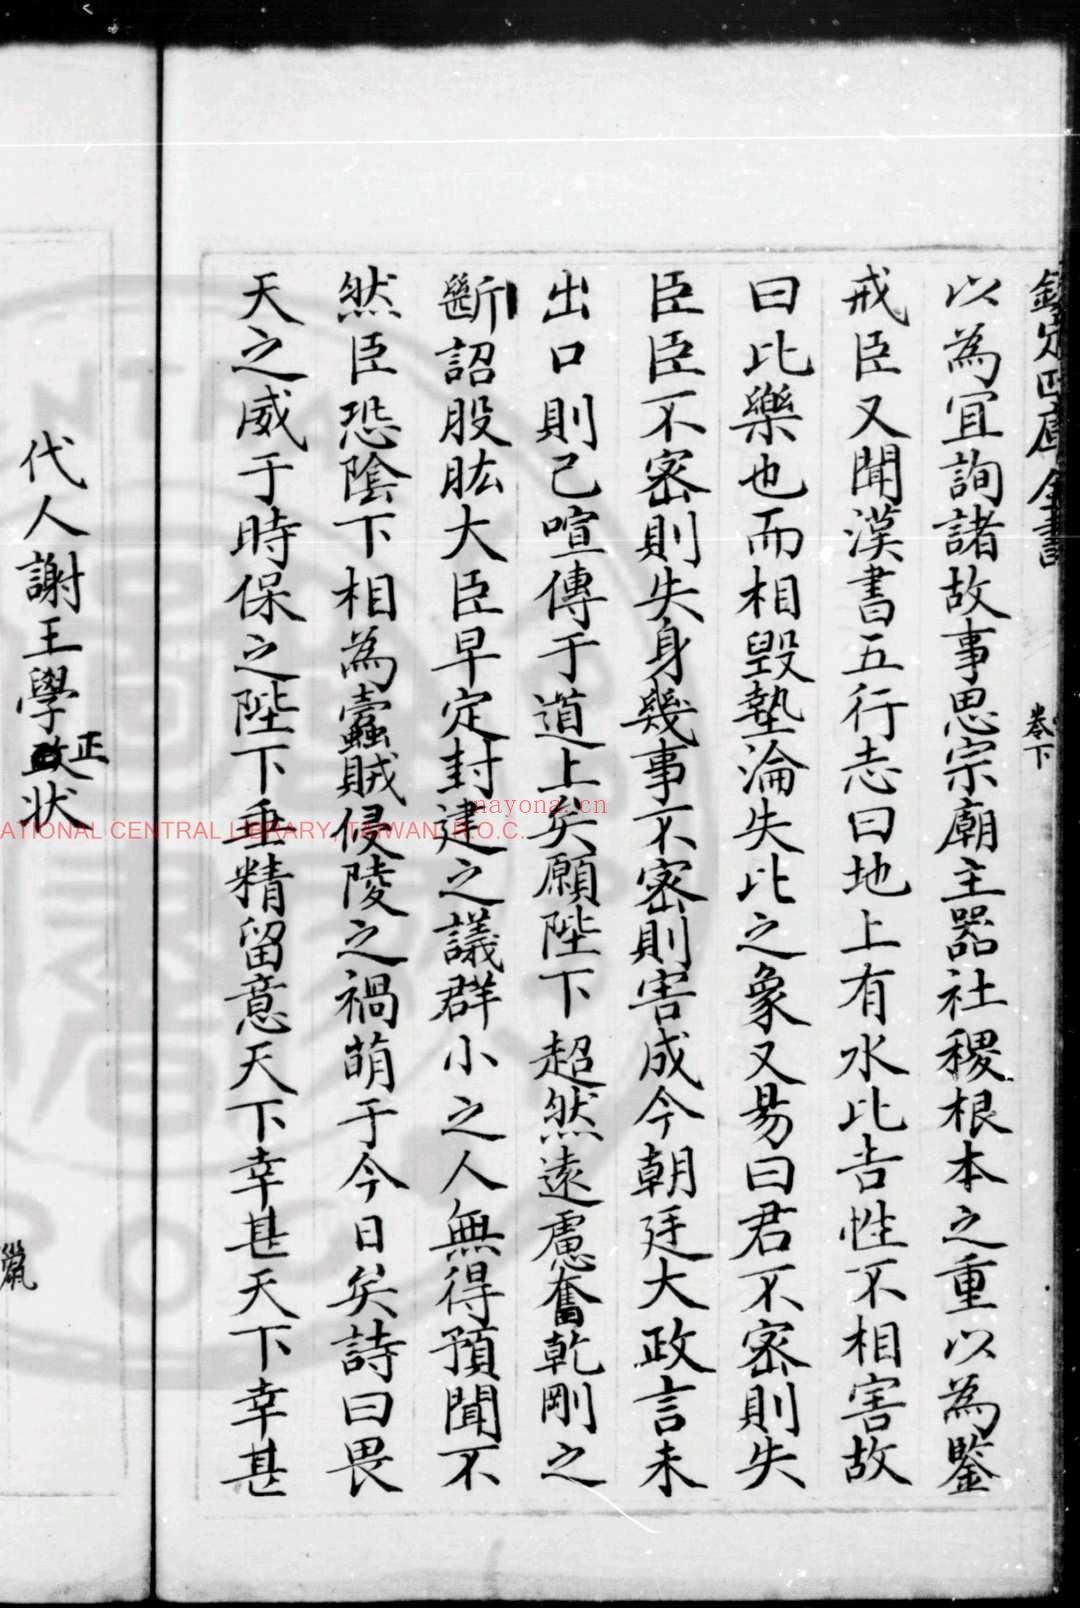 欽定四庫全書
卷下
以為宜詢諸故事思宗廟主器社稷根本之重以為鑒
戒臣又聞漢書五行志曰地上有水比吉性不相害故
曰比樂也而相毀墊淪失比之象又易曰君不密則失
臣臣不密則失身幾事不密則害成今朝廷大政言未
出口則已喧傳于道上矣願陛下超然遠慮奮乾剛之
斷詔股肱大臣早定封建之議群小之人無得預聞不
然臣恐陰下相為蠹賊侵陵之禍萌于今日矣詩曰畏
天之威于時保之陛下垂精留意天下幸甚天下幸甚
代人謝王學政狀
正
NATIONAL CENTRAL LIBRARY, TAIWAN, R.O.C.
nayona.cn